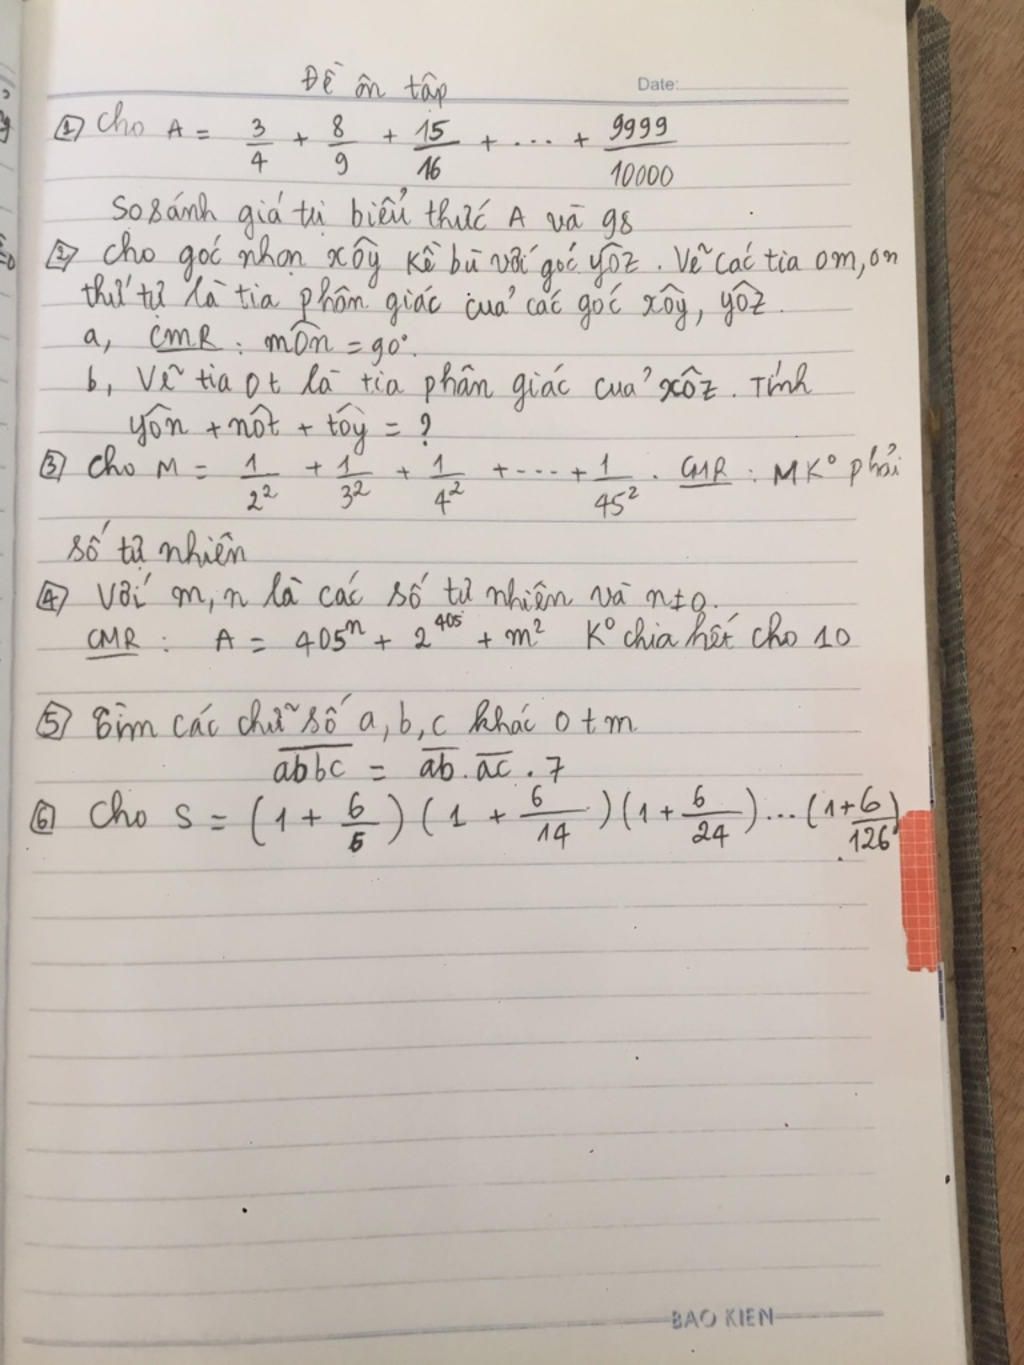 Đề ôn tập
Date:
① Cho A = 3/4 + 8/9 + 15/16 + ... + 9999/10000
So sánh giá trị biểu thức A và 98
② Cho góc nhọn xÔy kề bù với góc yÔz. Vẽ các tia Om, On
thứ tự là tia phân giác của các góc xÔy, yÔz.
a, CMR : mÔn = 90°.
b, Vẽ tia Ot là tia phân giác của xÔz. Tính
yÔn + nÔt + tÔy = ?
③ Cho M = 1/2² + 1/3² + 1/4² + ... + 1/45². CMR : M K° phải
số tự nhiên
④ Với m, n là các số tự nhiên và n ≠ 0.
CMR : A = 405ⁿ + 2⁴⁰⁵ + m² K° chia hết cho 10
⑤ Tìm các chữ số a, b, c khác 0 t m
a̅b̅b̅c̅ = a̅b̅ . a̅c̅ . 7
⑥ Cho S = (1 + 6/5) (1 + 6/14) (1 + 6/24) ... (1 + 6/126)
BAO KIEN